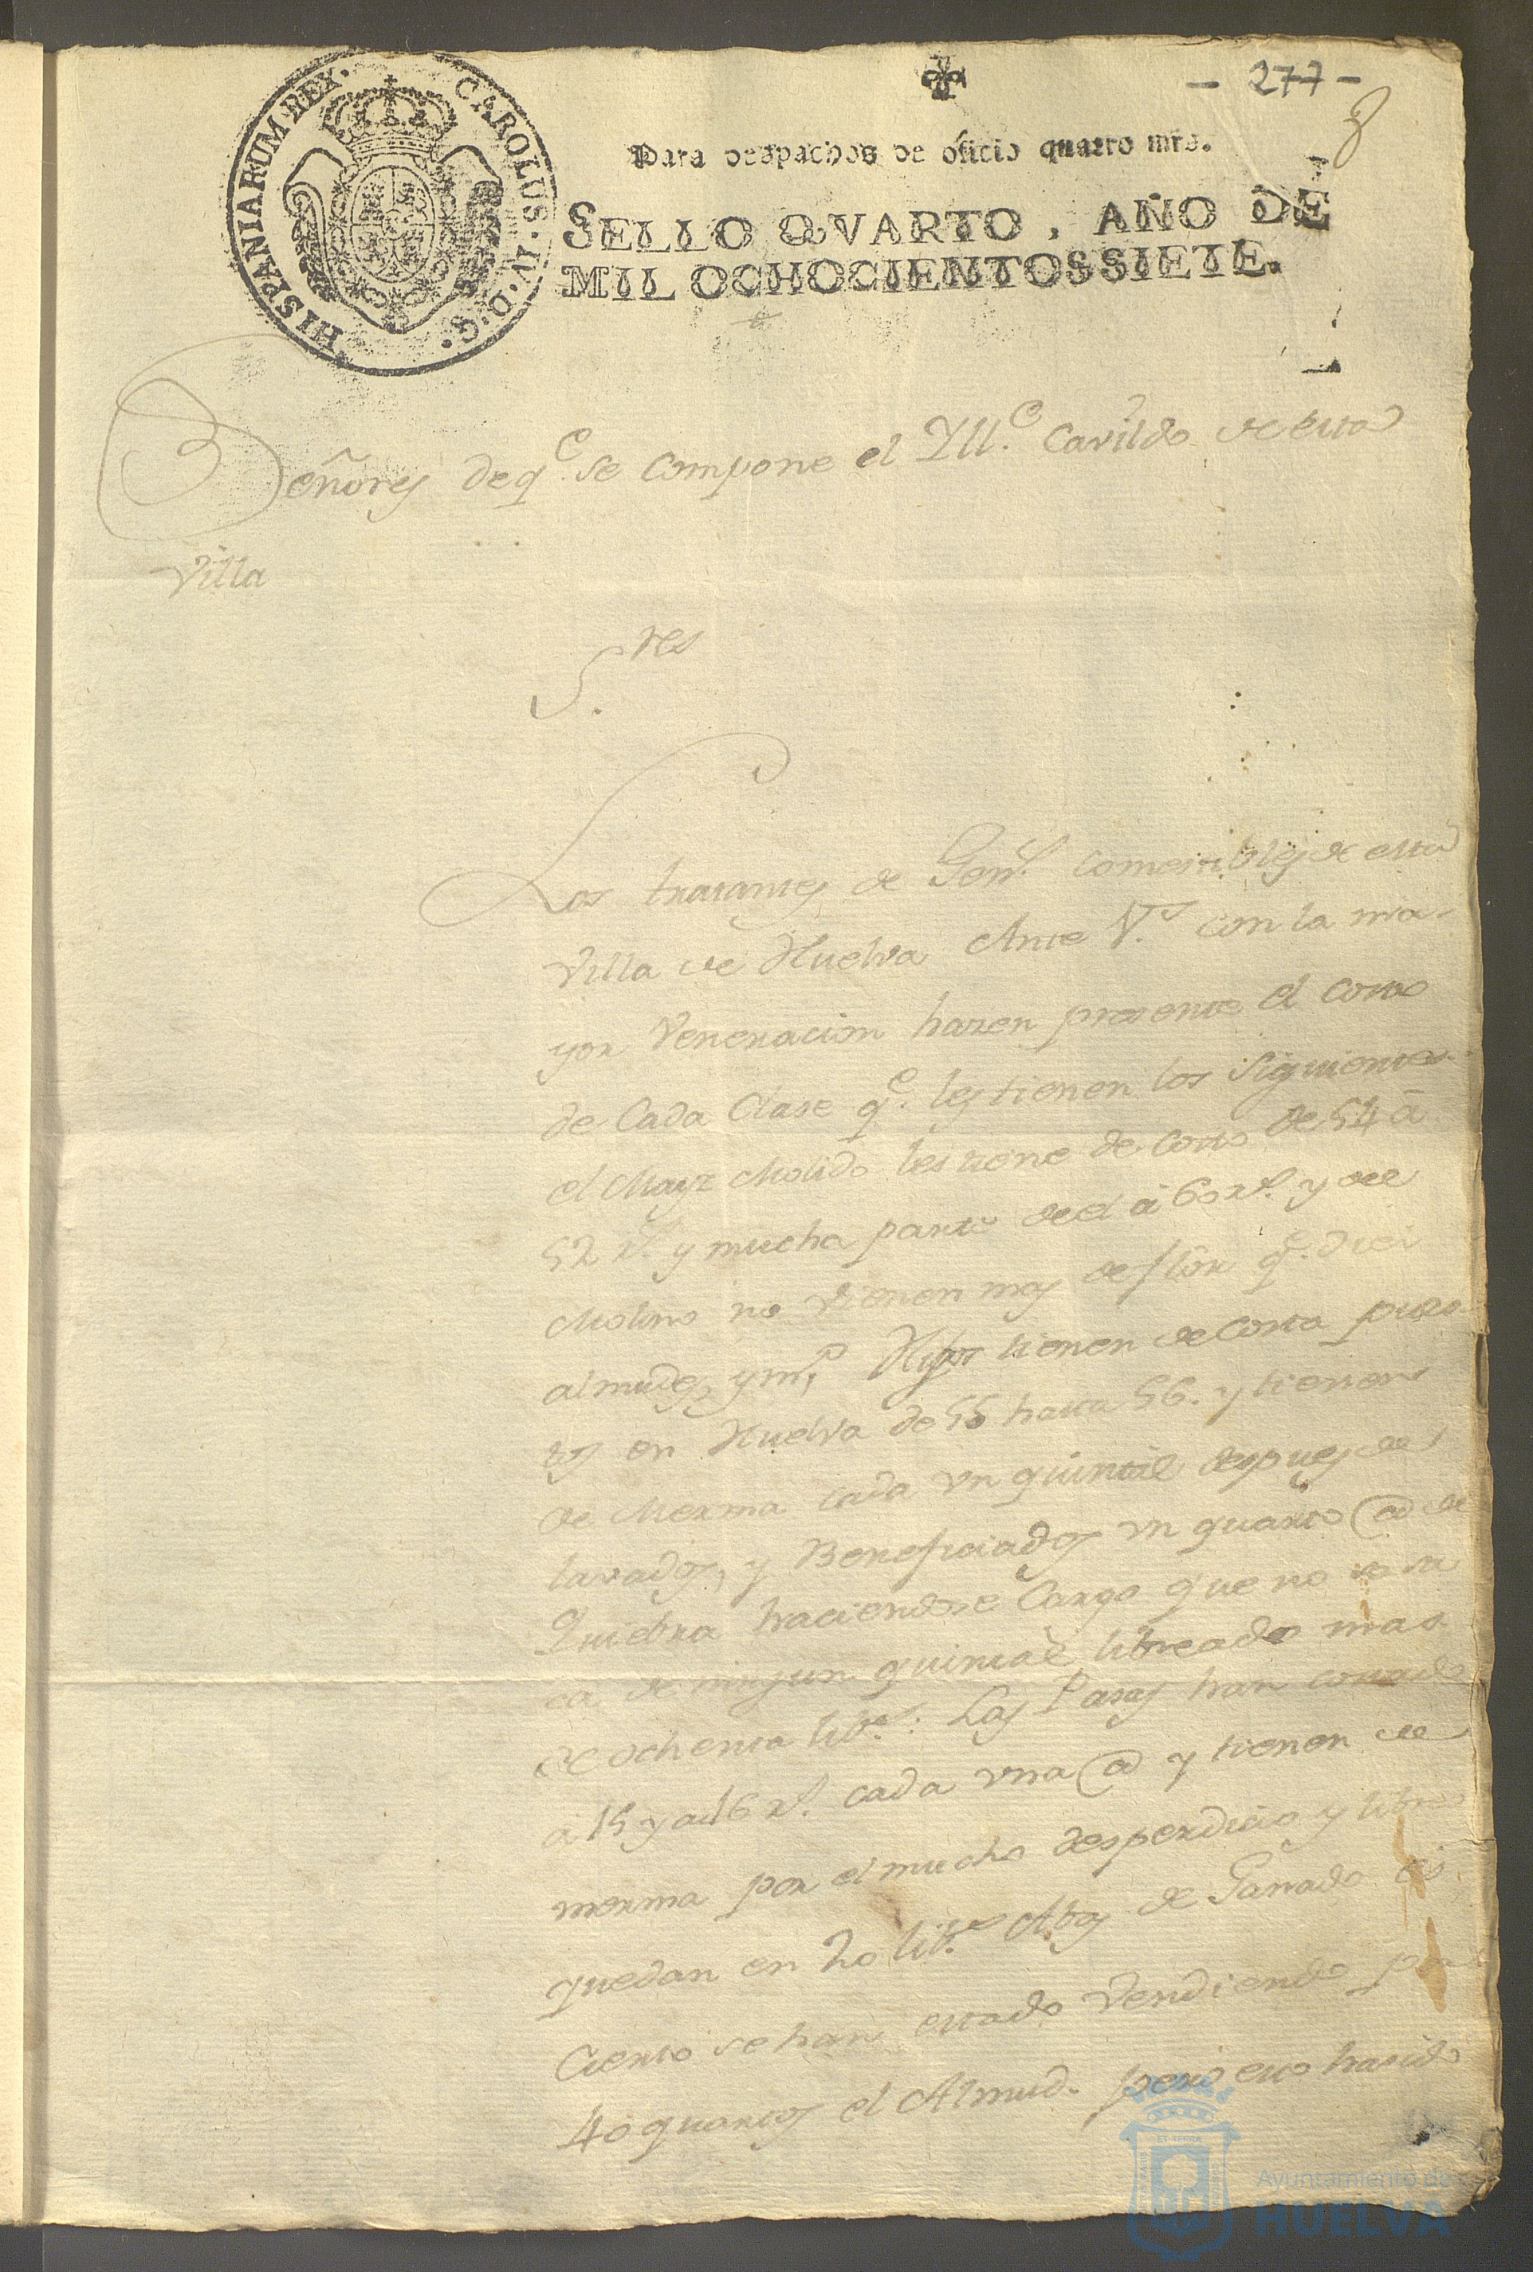 - 277 -
HISPANIARUM·REX· CAROLUS·IV·D·G·
Para despachos de oficio quatro mrs.
SELLO QVARTO, AÑO DE
MIL OCHOCIENTOS SIETE.
Señores de q.e se compone el Yll.e Cavildo de esta
Villa
S.res
Los tratantes de Gen.s comestibles de esta
Villa de Huelva Ante V.s con la ma-
yor Veneracion hazen presente el costo
de Cada Clase q.e les tienen los Siguientes
el Mayz Molido les tiene de Costo de 54 á
52 r.s y mucha parte de el á 60 r.s y del
Molino no vienen mas de flor q.e diez
almudes y m.o Higos tienen de Costa pues-
tos en Huelva de 55 hasta 56. y tienen
de Merma cada un quintal despues de
lavados, y Beneficiados un quarto @ de
Quiebra haciendose Cargo que no se sa
ca de ningun quintal libreado mas
de ochenta lib.s. Las Pasas han costado
a 15 y a 16 r.s. cada una @ y tienen de
merma por el mucho desperdicio y libre
quedan en 20 lib.s Abas de Ganado es
Cierto se han estado Vendiendo por
40 quartos el Almud. pero esto ha sido
Ayuntamiento de
HUELVA